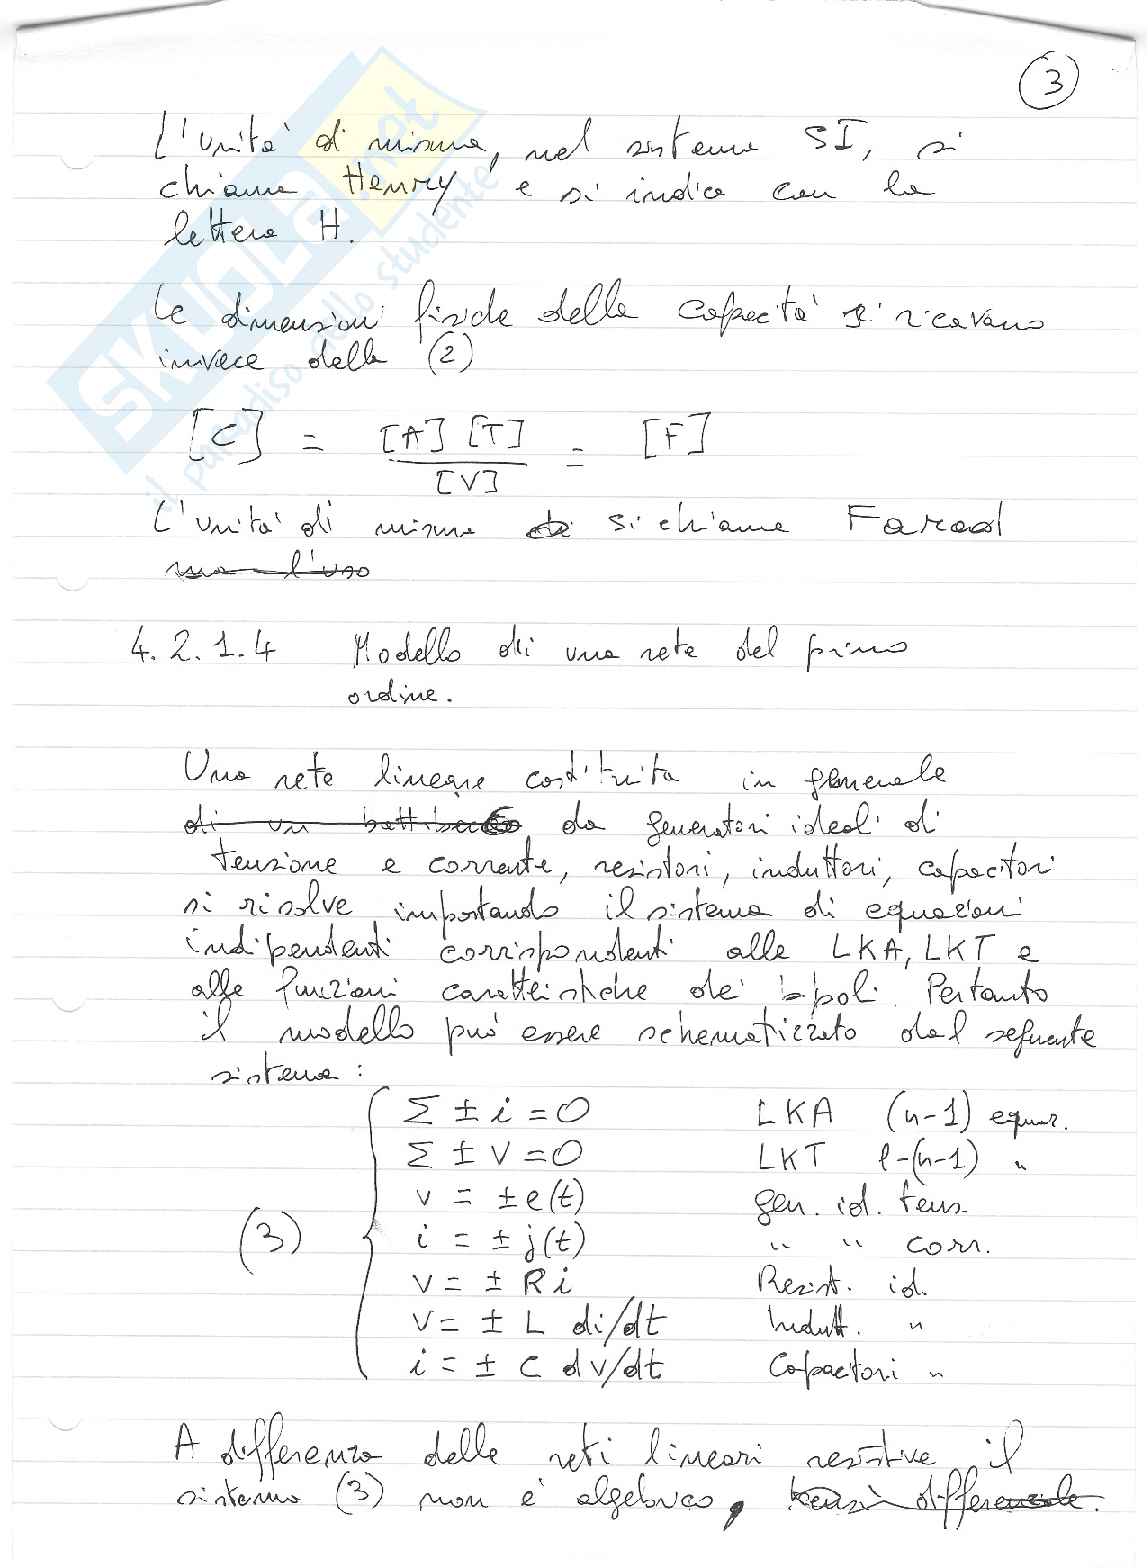 3
L'unità di misura, nel sistema SI, si
chiama Henry e si indica con la
lettera H.
Le dimensioni fisiche della capacità si ricavano
invece dalla (2)
[C] = [A] [T] / [V] = [F]
L'unità di misura si chiama Farad
ma l'uso
4.2.1.4 Modello di una rete del primo
ordine.
Una rete lineare costituita in generale
di un da generatori ideali di
tensione e corrente, resistori, induttori, capacitori
si risolve impostando il sistema di equazioni
indipendenti corrispondenti alle LKA, LKT e
alle funzioni caratteristiche dei bipoli. Pertanto
il modello può essere schematizzato dal seguente
sistema:
Σ ± i = 0 LKA (n-1) equaz.
Σ ± v = 0 LKT l-(n-1) "
v = ± e(t) gen. id. tens.
(3) i = ± j(t) " " corr.
v = ± R i Resist. id.
v = ± L di/dt Indutt. "
i = ± C dv/dt Capacitori "
A differenza delle reti lineari resistive il
sistema (3) non è algebrico, differenziale.
SKUOLA.net
il paradiso dello studente